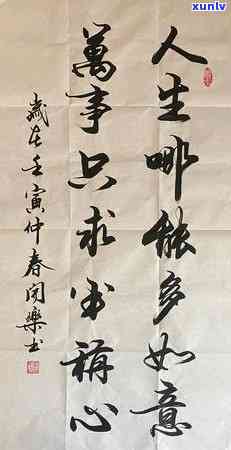 人生哪能多如意
萬事只求半稱心
歲在壬寅仲春閑樂書
xunlv